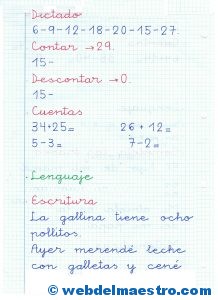 Dictado
6-9-12-18-20-15-27.
Contar →29.
15-
Descontar →0.
15-
Cuentas
34+25= 26+12=
5-3= 7-2=
Lenguaje
Escritura
La gallina tiene ocho
pollitos.
Ayer merendé leche
con galletas y cené
© webdelmaestro.com